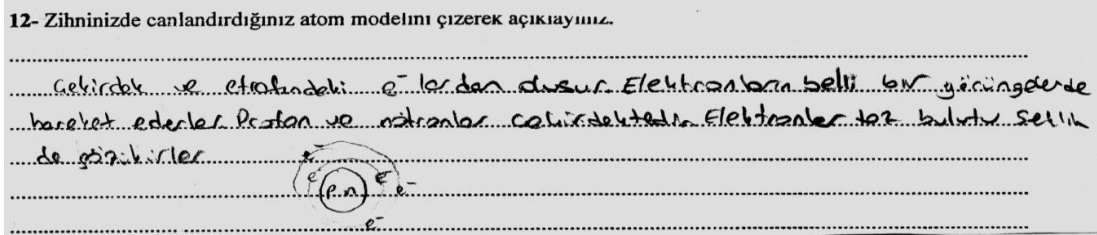 12- Zihninizde canlandırdığınız atom modelini çizerek açıklayınız.
Çekirdek ve etrafındaki e⁻ lerden olusur Elektronların belli bir yörüngelerde
hareket ederler Proton ve nötronlar cekirdektedir Elektronlar toz bulutu seklin
de gözükürler
e⁻
e⁻ e
p n e⁻
e⁻